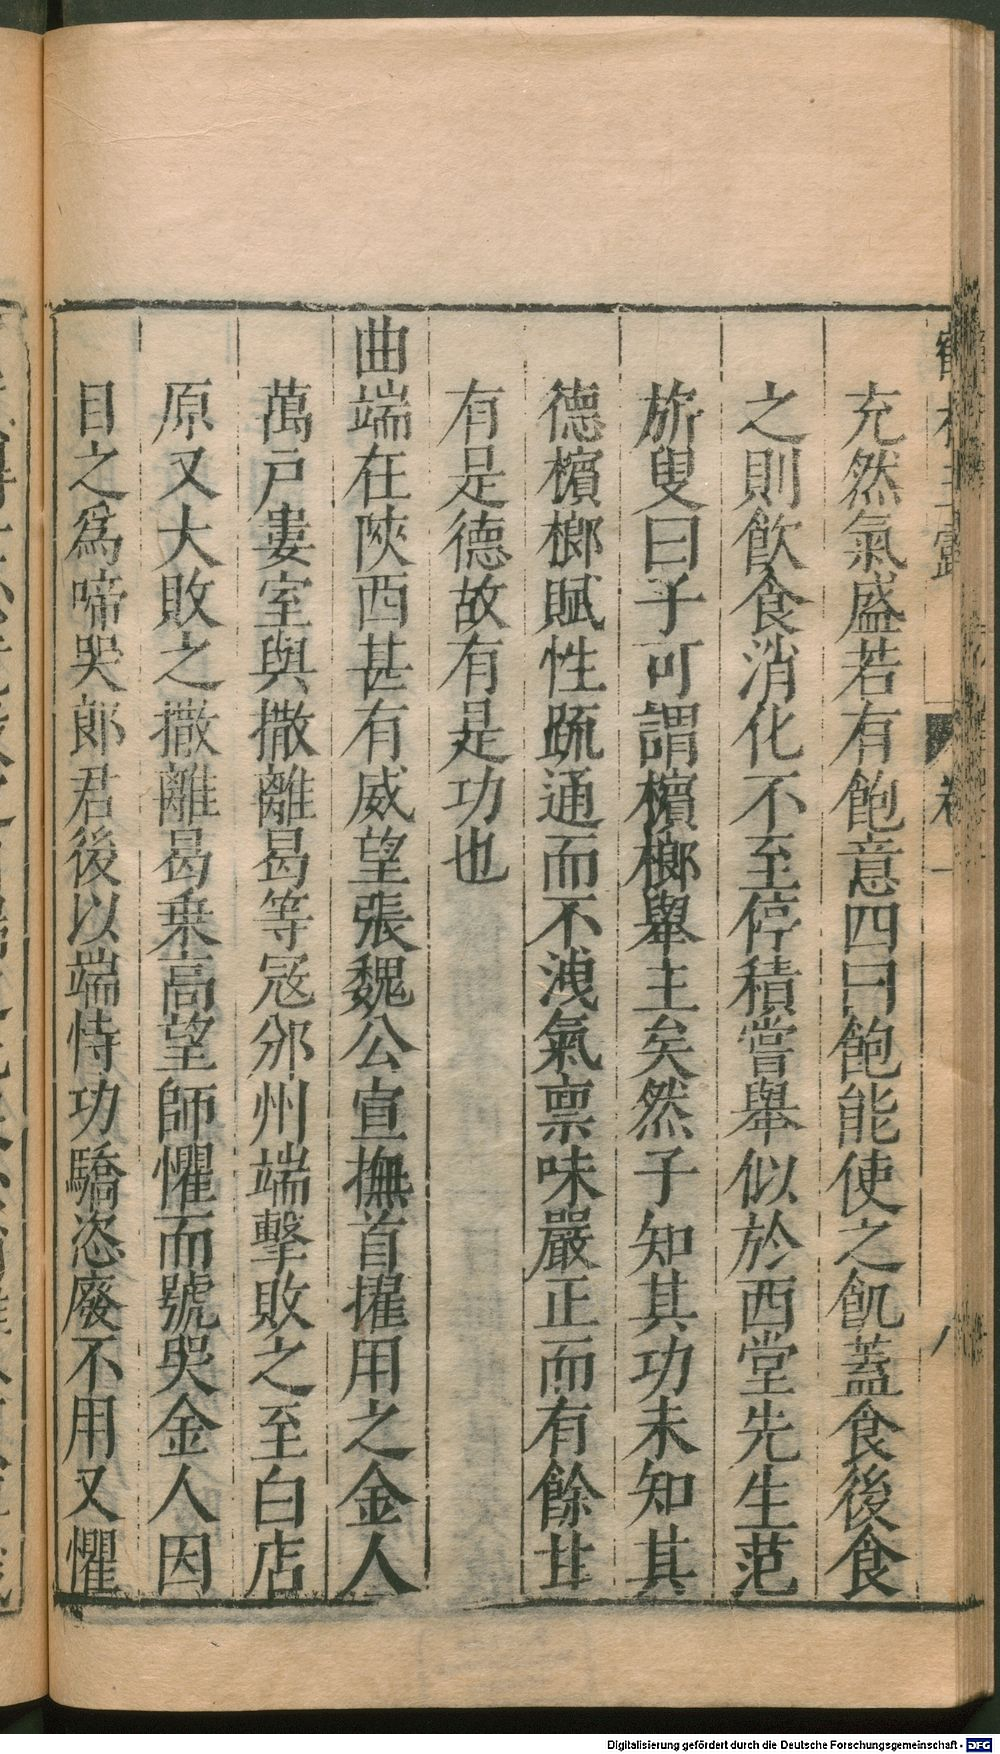 充然氣盛若有飽意四曰飽能使之飢蓋食後食
之則飲食消化不至停積嘗舉似於西堂先生范
旂叟曰子可謂檳榔舉主矣然子知其功未知其
德檳榔賦性疏通而不洩氣禀味嚴正而有餘甘
有是德故有是功也
曲端在陝西甚有威望張魏公宣撫首擢用之金人
萬戶婁室與撒離曷等寇邠州端擊敗之至白店
原又大敗之撒離曷乗高望師懼而號哭金人因
目之爲啼哭郎君後以端恃功驕恣廢不用又懼
卷一
Digitalisierung gefördert durch die Deutsche Forschungsgemeinschaft - DFG